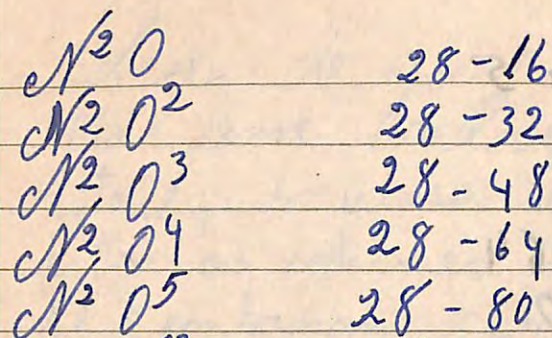 N² O 28-16
N² O² 28-32
N² O³ 28-48
N² O4 28-64
N² O⁵ 28-80